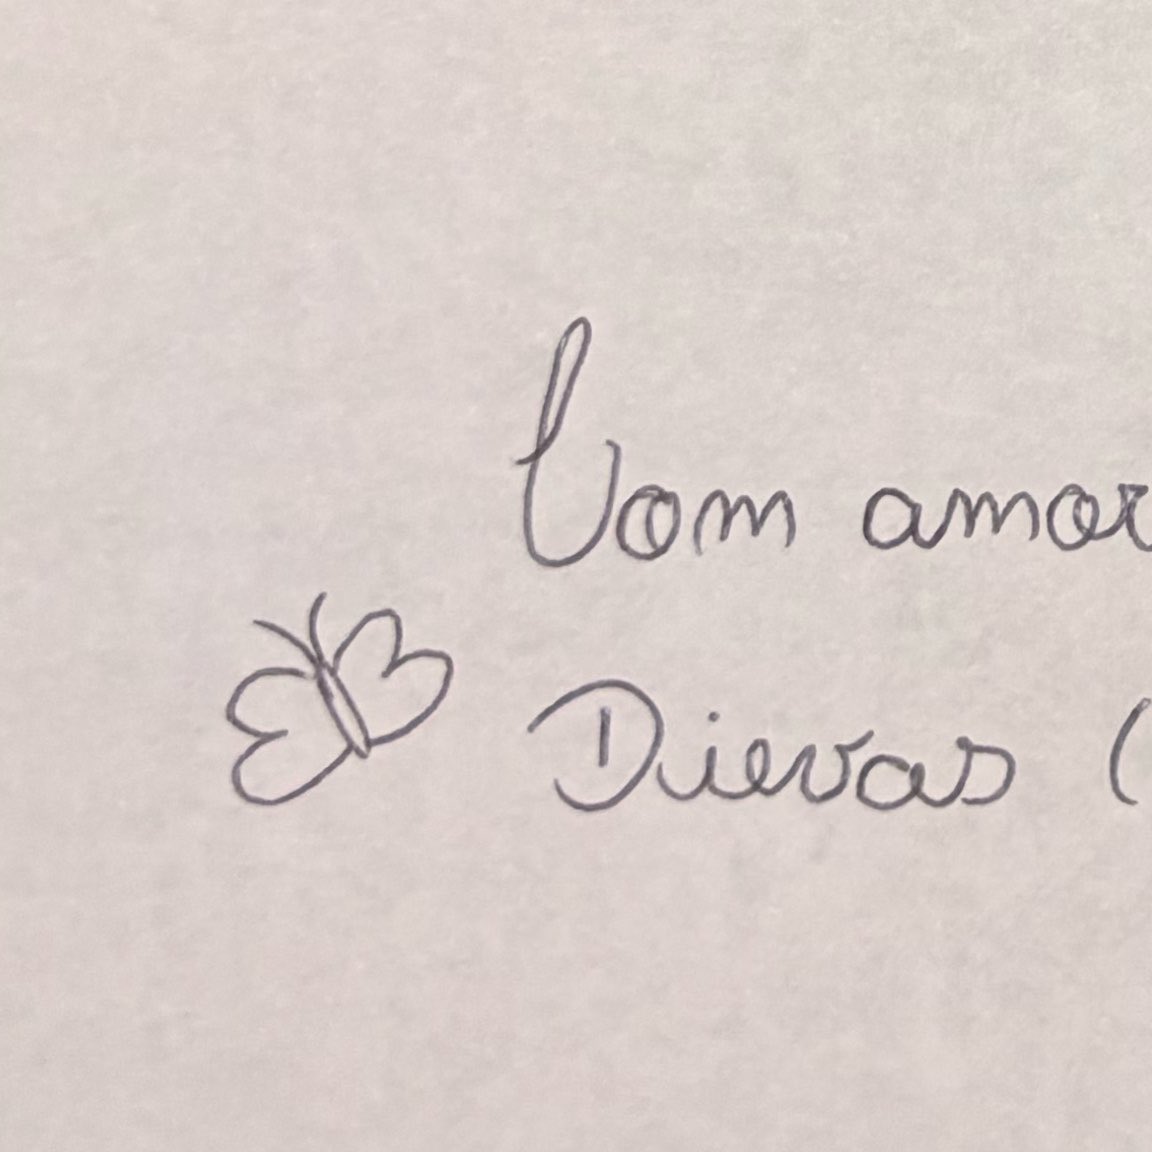 Com amor
Dievas (